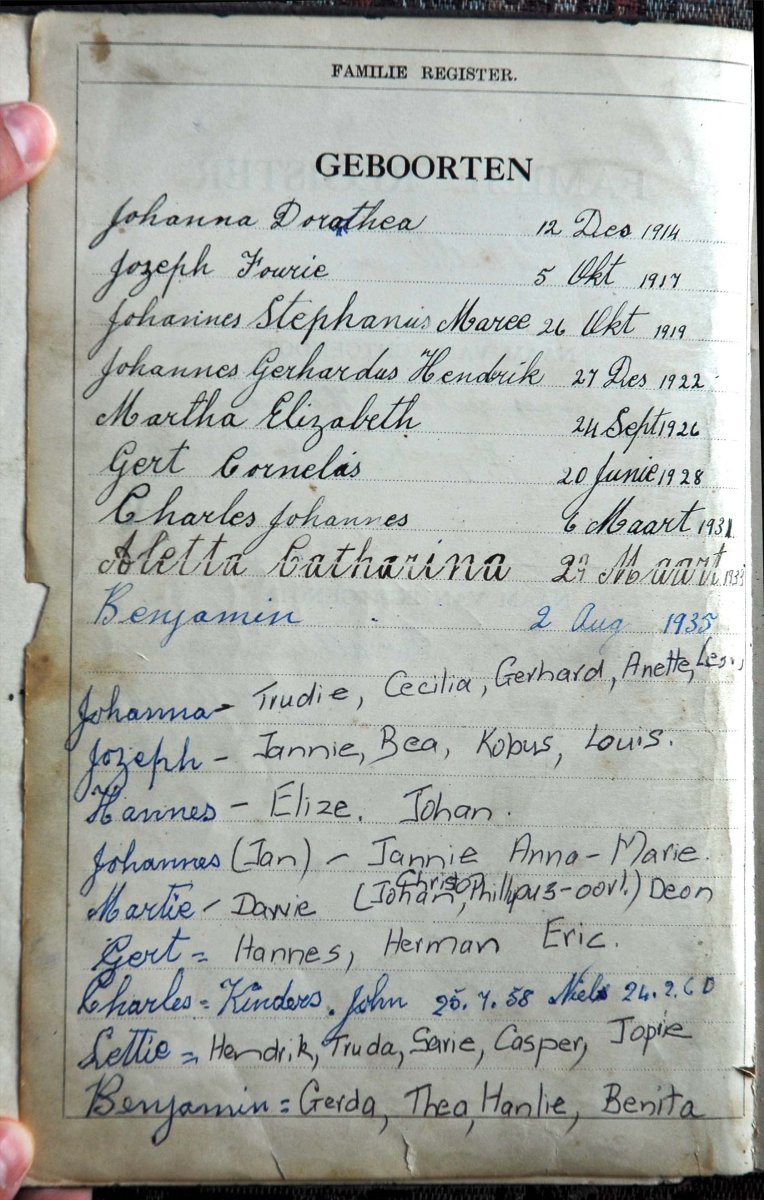 FAMILIE REGISTER.
GEBOORTEN
Johanna Dorathea 12 Des 1914
Jozeph Fourie 5 Okt 1917
Johannes Stephanus Maree 26 Okt 1919
Johannes Gerhardus Hendrik 27 Des 1922
Martha Elizabeth 24 Sept 1926
Gert Cornelis 20 Junie 1928
Charles Johannes 6 Maart 1931
Aletta Catharina Maart
Benjamin 2 Aug 1935
Johanna - Trudie, Cecilia, Gerhard, Anette,
Jozeph - Jannie, Bea, Kobus, Louis.
Hannes - Elize. Johan.
Johannes (Jan) - Jannie Anna-Marie.
Christo
Martie - Dawie (Johan, Phillipus-oorl.) Deon
Gert = Hannes, Herman Eric.
Charles = Kinders. John 25.7.58 Niels 24.2.60
Lettie = Hendrik, Truda, Sarie, Casper, Jopie
Benjamin = Gerda, Thea, Hanlie, Benita